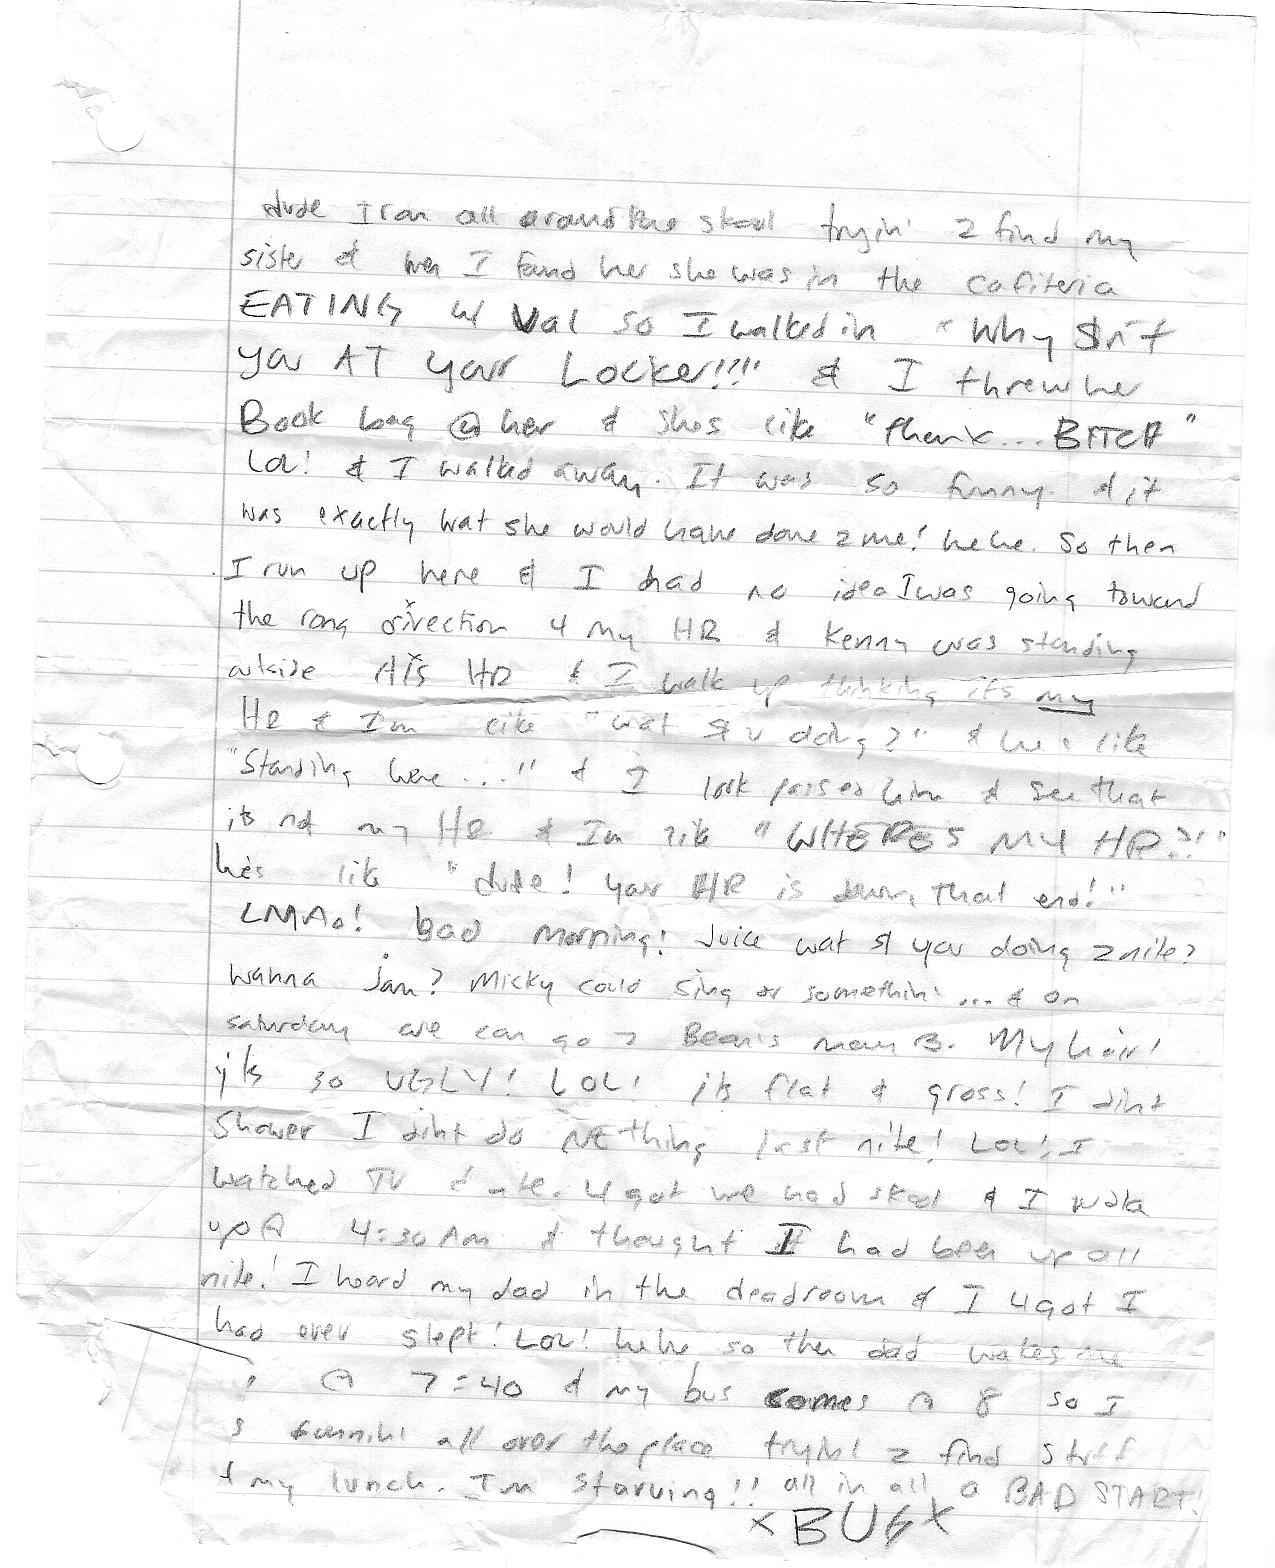 dude I ran all around the skool tryin' 2 find my
sister & wen I found her she was in the cafiteria
EATING w/ Val so I walked in "Why
you AT your Locker!!!!" & I threw her
Book bag @ her & shes like "thanx... BITCH"
LOL! & I walked away. It was so funny & it
was exactly wat she would have done 2 me! hehe. So then
I run up here & I had no idea I was going toward
the rong direction 4 my HR & Kenny was standing
outside his HR & I walk up thinking its my
HR & Im like "wat u doing?" & he's like
"Standing here..." & I look passed him & see that
its not my HR & Im like "WHERES MY HR?!"
he's like "dude! your HR is down that end!"
LMAO! bad morning! Juice wat you doing 2nite?
wanna jam? Micky could sing or somethin'... & on
saturday we can go 2 Bean's My hair!
its so UGLY! LOL! its flat & gross! I dint
Shower I dint do NEthing last nite! LOL! I
watched TV & ate. 4got we had skool & I woke
up @ 4:30 Am & thought I had been up all
nite! I heard my dad in the deadroom & I 4got I
had over slept! LOL! hehe so then dad wakes me
@ 7:40 & my bus comes @ 8 so I
s runnin' all over the place tryin' 2 find stuff
& my lunch. I'm starving!! all in all a BAD START!
xBUGx